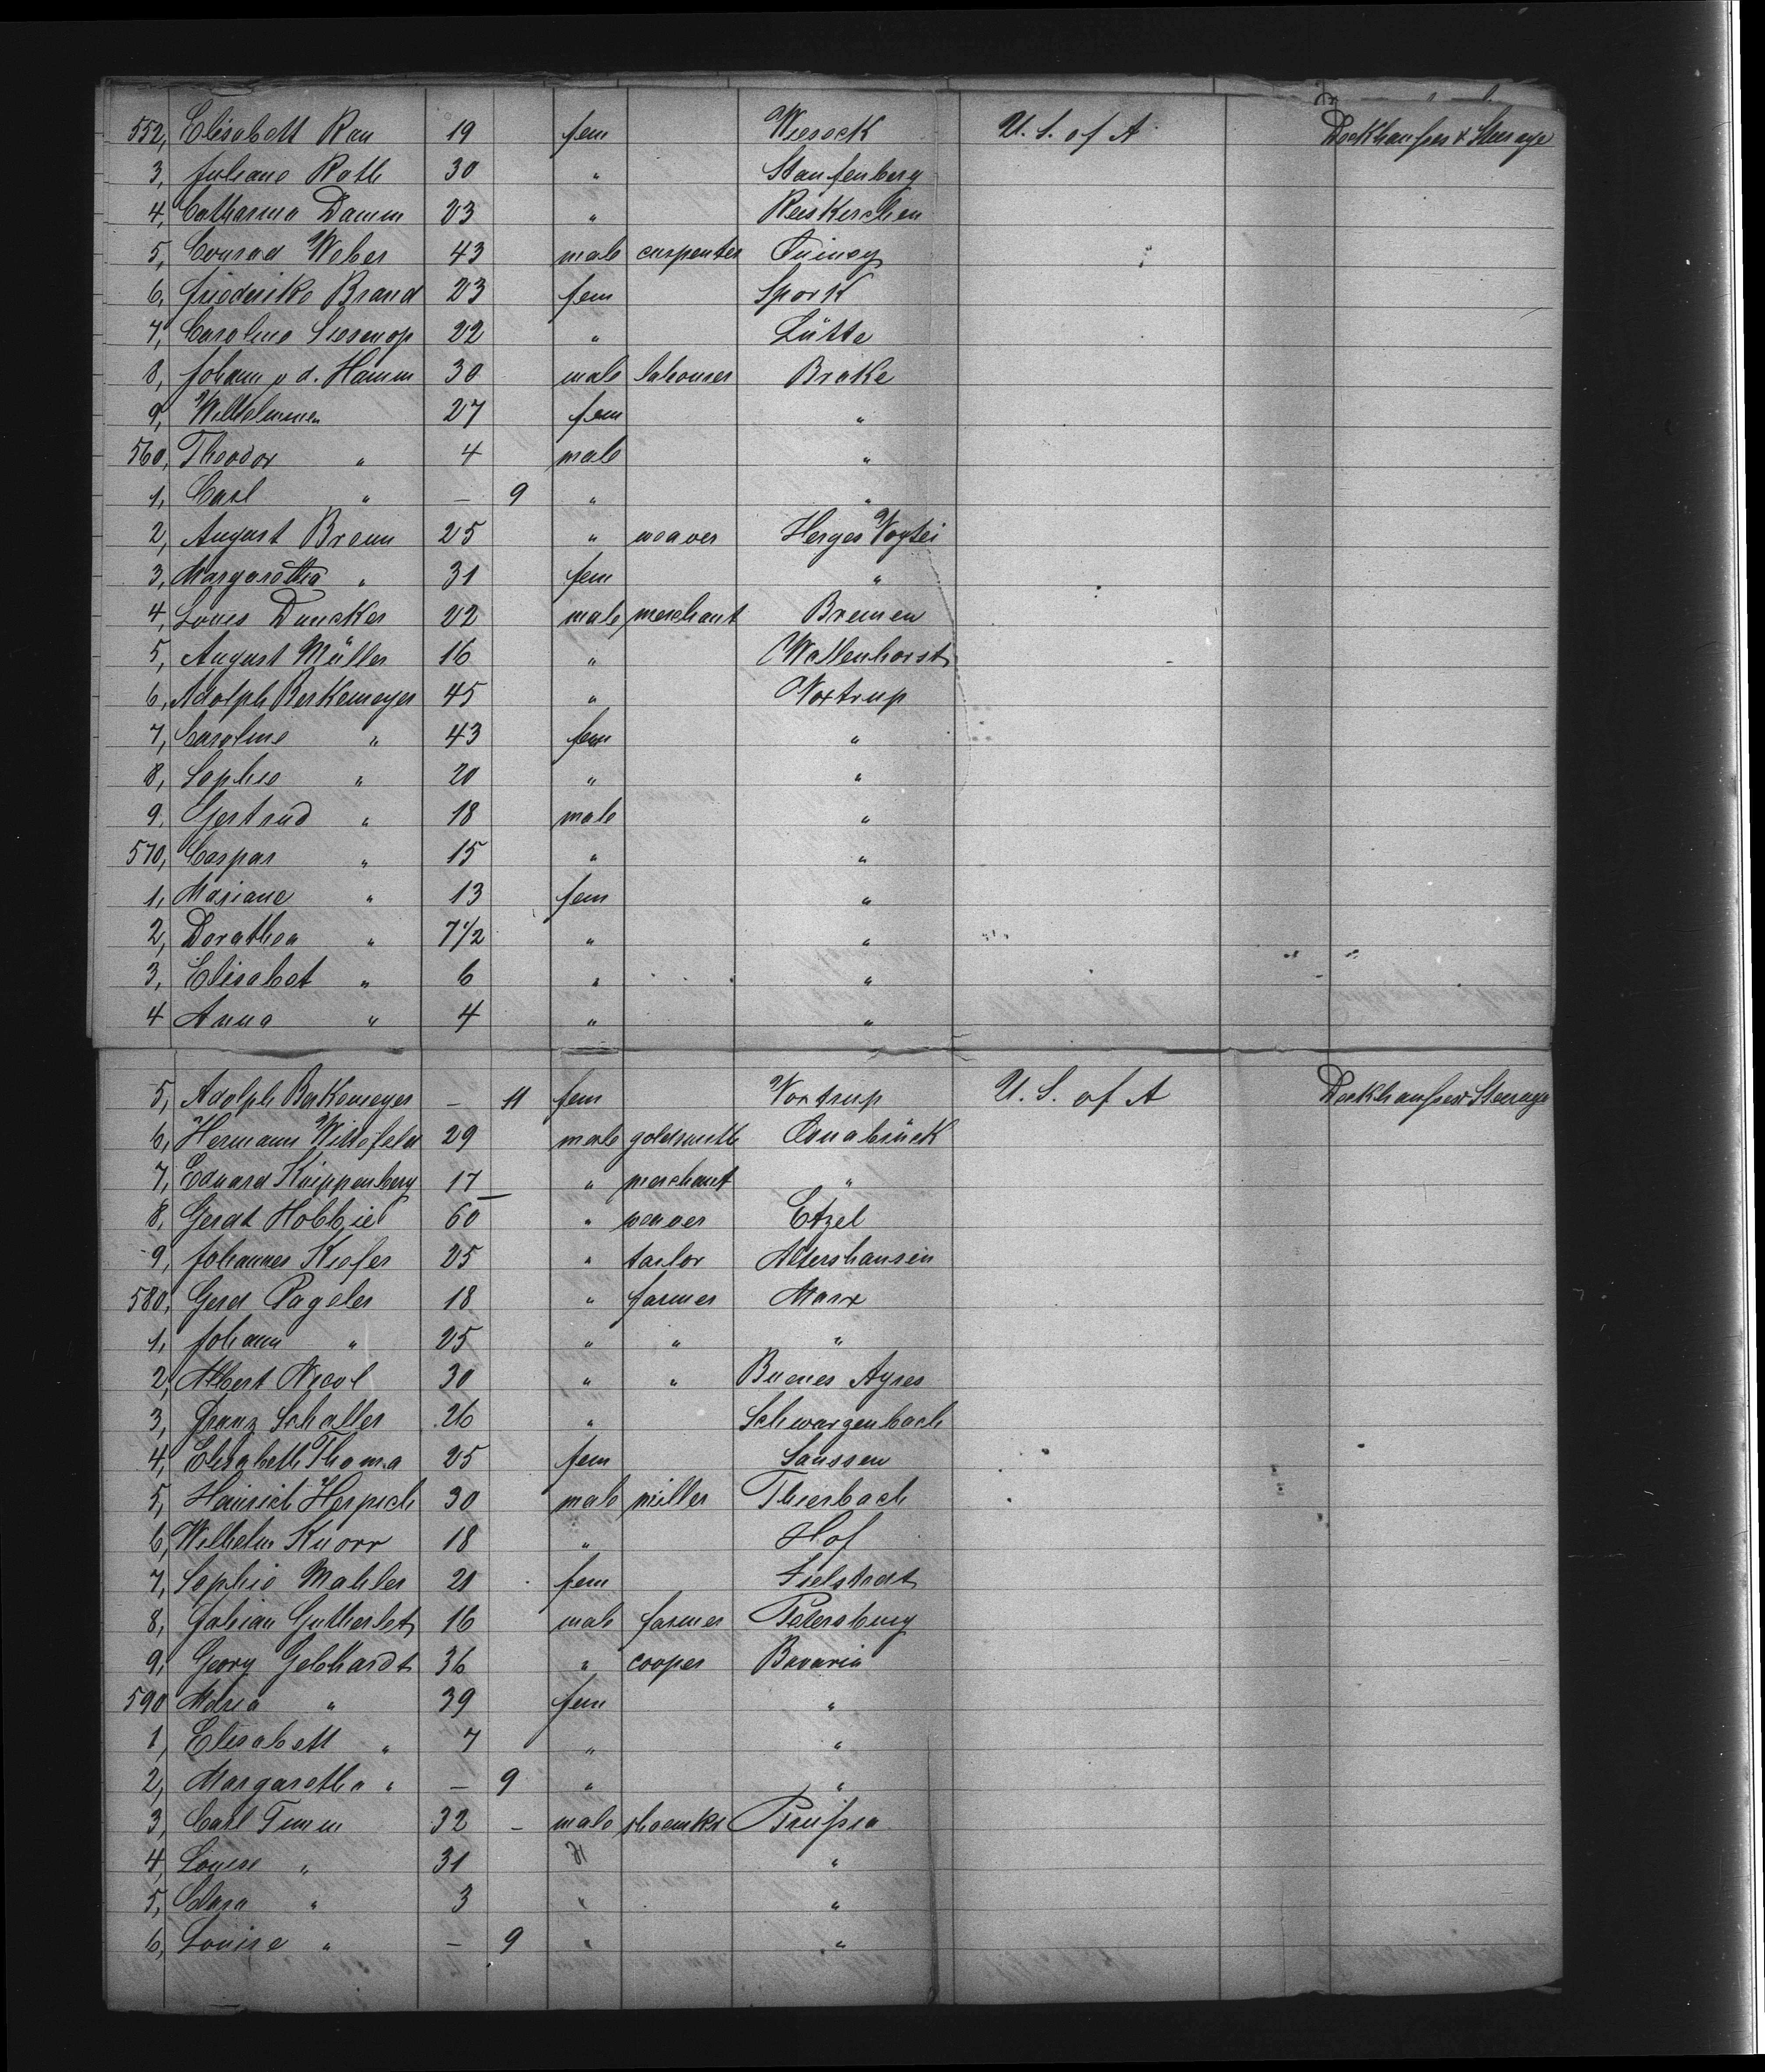 552, Elisabeth Rau 19 fem Wieseck U. S. of A Deckhauses & Steerage
3, Juliane Roth 30 " Staufenberg
4, Catharina Damm 23 " Reiskirchen
5, Conrad Weber 43 male carpenter Quincy
6, Friederike Brand 23 fem Spork
7, Caroline Siesenop 22 " Lütte
8, Johann v d. Hamm 30 male labourer Brake
9, Wilhelmine 27 fem "
560, Theodor " 4 male "
1, Carl " — 9 " "
2, August Braun 25 " weaver Herges Vogtei
3, Margaretha " 31 fem "
4, Louis Duncker 22 male merchant Bremen
5, August Müller 16 " Wallenhorst
6, Adolph Berkemeyer 45 " Voxtrup
7, Caroline " 43 fem "
8, Sophie " 20 " "
9, Gertrud " 18 male "
570, Caspar " 15 " "
1, Mariane " 13 fem "
2, Dorathea " 7 1/2 " "
3, Elisabet " 6 " "
4 Anna " 4 " "
5, Adolph Berkemeyer — 11 fem Voxtrup U. S. of A Deckhauses & Steerage
6, Hermann Wittefeld 29 male goldsmith Osnabrück
7, Eduard Knippenberg 17 " merchant "
8, Gerdt Hobbie 60 " weaver Etzel
9, Johannes Kiefer 25 " tailor Altershausen
580, Gerd Pageler 18 " farmer Marx
1, Johann " 25 " " "
2, Albert Nicol 30 " " Buenes Ayres
3, Franz Schaller 26 " Schwarzenbach
4, Elisabeth Thoma 25 fem Saussen
5, Heinrich Herpich 30 male miller Thierbach
6, Wilhelm Knorr 18 " Hof
7, Sophie Mahler 21 fem
8, Fabian Gutberlet 16 male farmer Petersburg
9, Georg Gebhardt 36 " cooper Bavaria
590 Maria " 39 fem "
1, Elisabeth " 7 " "
2, Margaretha " — 9 " "
3, Carl Timm 32 – male shoemkr Prussia
4, Louise " 31 "
5, Clara " 3 " "
6, Louise " — 9 " "